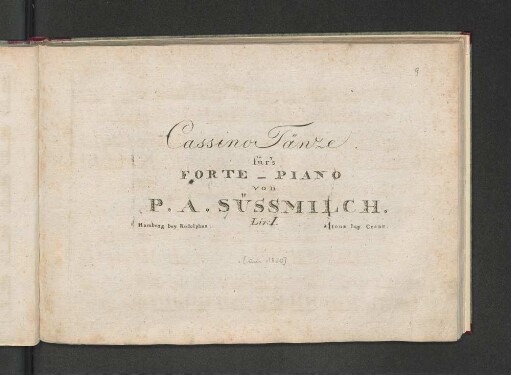 9
Cassino Tänze
für's
FORTE - PIANO
VON
P. A. SÜSSMILCH.
Liv. I.
Hamburg bey Rudolphus. Altona bey Crone.
[um 1820]